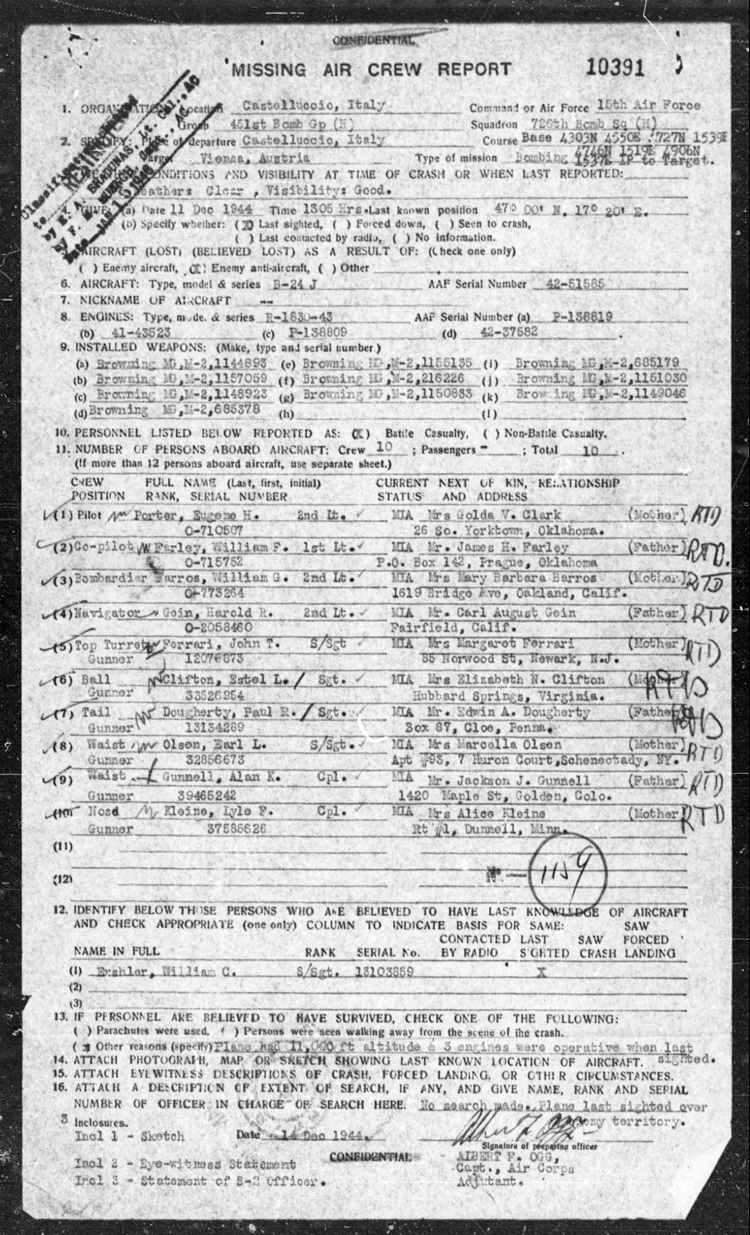 CONFIDENTIAL
MISSING AIR CREW REPORT 10391
1. ORGANIZATION: Location Castelluccio, Italy Command or Air Force 15th Air Force
Group 451st Bomb Gp (H) Squadron 726th Bomb Sq (H)
2. SPECIFY: Place of departure Castelluccio, Italy Course Base 4303N 4550E 4727N 1539E
4746N 1519E 4906N
Target Vienna, Austria Type of mission Bombing 1537E IP to Target.
CONDITIONS AND VISIBILITY AT TIME OF CRASH OR WHEN LAST REPORTED:
Weather: Clear , Visibility: Good.
GIVE: (a) Date 11 Dec 1944 Time 1305 Hrs. Last known position 47° 00' N. 17° 20' E.
(b) Specify whether: (X) Last sighted, ( ) Forced down, ( ) Seen to crash,
( ) Last contacted by radio, ( ) No information.
AIRCRAFT (LOST) (BELIEVED LOST) AS A RESULT OF: (Check one only)
( ) Enemy aircraft, (X) Enemy anti-aircraft, ( ) Other
6. AIRCRAFT: Type, model & series B-24 J AAF Serial Number 42-51585
7. NICKNAME OF AIRCRAFT --
8. ENGINES: Type, mode. & series R-1830-43 AAF Serial Number (a) P-138819
(b) 41-43523 (c) P-138809 (d) 42-37582
9. INSTALLED WEAPONS: (Make, type and serial number.)
(a) Browning MG,M-2,1144893 (e) Browning MG,M-2,1155135 (i) Browning MG,M-2,685179
(b) Browning MG,M-2,1157059 (f) Browning MG,M-2,216226 (j) Browning MG,M-2,1151030
(c) Browning MG,M-2,1148923 (g) Browning MG,M-2,1150833 (k) Browning MG,M-2,1149046
(d) Browning MG,M-2,685378 (h) (l)
10. PERSONNEL LISTED BELOW REPORTED AS: (X) Battle Casualty, ( ) Non-Battle Casualty.
11. NUMBER OF PERSONS ABOARD AIRCRAFT: Crew 10 ; Passengers - ; Total 10 .
(If more than 12 persons aboard aircraft, use separate sheet.)
CREW FULL NAME (Last, first, initial) CURRENT NEXT OF KIN, RELATIONSHIP
POSITION RANK, SERIAL NUMBER STATUS AND ADDRESS
(1) Pilot Porter, Eugene H. 2nd Lt. MIA Mrs Golda V. Clark (Mother) RTD
O-710507 26 So. Yorktown, Oklahoma.
(2) Co-pilot Farley, William F. 1st Lt. MIA Mr. James H. Farley (Father) RTD.
O-715762 P.O. Box 142, Prague, Oklahoma
(3) Bombardier Barros, William G. 2nd Lt. MIA Mrs Mary Barbara Barros (Mother) RTD
O-773264 1619 Bridge Ave, Oakland, Calif.
(4) Navigator Gein, Harold R. 2nd Lt. MIA Mr. Carl August Gein (Father) RTD
O-2058460 Fairfield, Calif.
(5) Top Turret Ferrari, John T. S/Sgt MIA Mrs Margaret Ferrari (Mother) RTD
Gunner 12076873 85 Norwood St, Newark, N.J.
(6) Ball Clifton, Estel L. Sgt. MIA Mrs Elizabeth N. Clifton (Mother) RTD
Gunner 33526954 Hubbard Springs, Virginia.
(7) Tail Dougherty, Paul R. Sgt. MIA Mr. Edwin A. Dougherty (Father) RTD
Gunner 13134289 Box 87, Cloe, Penna.
(8) Waist Olson, Earl L. S/Sgt. MIA Mrs Marcella Olsen (Mother) RTD
Gunner 32856673 Apt #93, 7 Huron Court, Schenectady, NY.
(9) Waist Gunnell, Alan K. Cpl. MIA Mr. Jackson J. Gunnell (Father) RTD
Gunner 39465242 1420 Maple St, Golden, Colo.
(10) Nose Kleine, Lyle F. Cpl. MIA Mrs Alice Kleine (Mother) RTD
Gunner 37585626 Rt #1, Dunnell, Minn.
(11)
(12) No — 1159
12. IDENTIFY BELOW THOSE PERSONS WHO ARE BELIEVED TO HAVE LAST KNOWLEDGE OF AIRCRAFT
AND CHECK APPROPRIATE (one only) COLUMN TO INDICATE BASIS FOR SAME: SAW
CONTACTED LAST SAW FORCED
NAME IN FULL RANK SERIAL No. BY RADIO SIGHTED CRASH LANDING
(1) Ershler, William C. S/Sgt. 13103859 X
(2)
(3)
13. IF PERSONNEL ARE BELIEVED TO HAVE SURVIVED, CHECK ONE OF THE FOLLOWING:
( ) Parachutes were used, ( ) Persons were seen walking away from the scene of the crash.
(X) Other reasons (specify) Plane had 11,000 ft altitude & 3 engines were operative when last
sighted.
14. ATTACH PHOTOGRAPH, MAP OR SKETCH SHOWING LAST KNOWN LOCATION OF AIRCRAFT.
15. ATTACH EYEWITNESS DESCRIPTIONS OF CRASH, FORCED LANDING, OR OTHER CIRCUMSTANCES.
16. ATTACH A DESCRIPTION OF EXTENT OF SEARCH, IF ANY, AND GIVE NAME, RANK AND SERIAL
NUMBER OF OFFICER IN CHARGE OF SEARCH HERE. No search made. Plane last sighted over
enemy territory.
3 Inclosures.
Incl 1 - Sketch Date 14 Dec 1944.
Signature of preparing officer
CONFIDENTIAL ALBERT F. OGG,
Incl 2 - Eye-witness Statement Capt., Air Corps
Incl 3 - Statement of S-2 Officer. Adjutant.